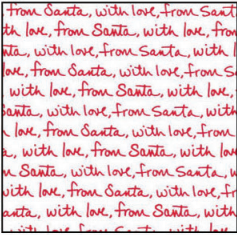 from Santa, with love, from Sant
th love, from Santa, with love, fro
ta, with love, from Santa, with l
love, from Santa, with love, from S
with love, from Santa, with love,
Santa, with love, from Santa, with
love, from Santa, with love, from
a, with love, from Santa, with lov
m Santa, with love, from Santa, w
with love, from Santa, with love, fr
anta, with love, from Santa, with
with love, from Santa, with lo